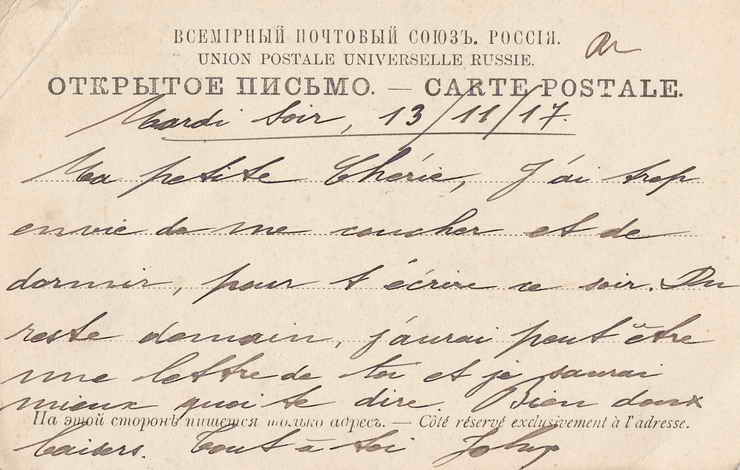 ВСЕМІРНЫЙ ПОЧТОВЫЙ СОЮЗЪ. РОССІЯ.
UNION POSTALE UNIVERSELLE RUSSIE.
ОТКРЫТОЕ ПИСЬМО. — CARTE POSTALE.
Mardi soir, 13/11/17.
Ma petite Chérie, J'ai trop
envie de me coucher et de
dormir, pour t'écrire ce soir. Du
reste demain, j'aurai peut être
une lettre de toi et je saurai
mieux quoi te dire. Bien doux
На этой сторонѣ пишется только адресъ. — Côté réservé exclusivement à l'adresse.
baisers. Tout à toi